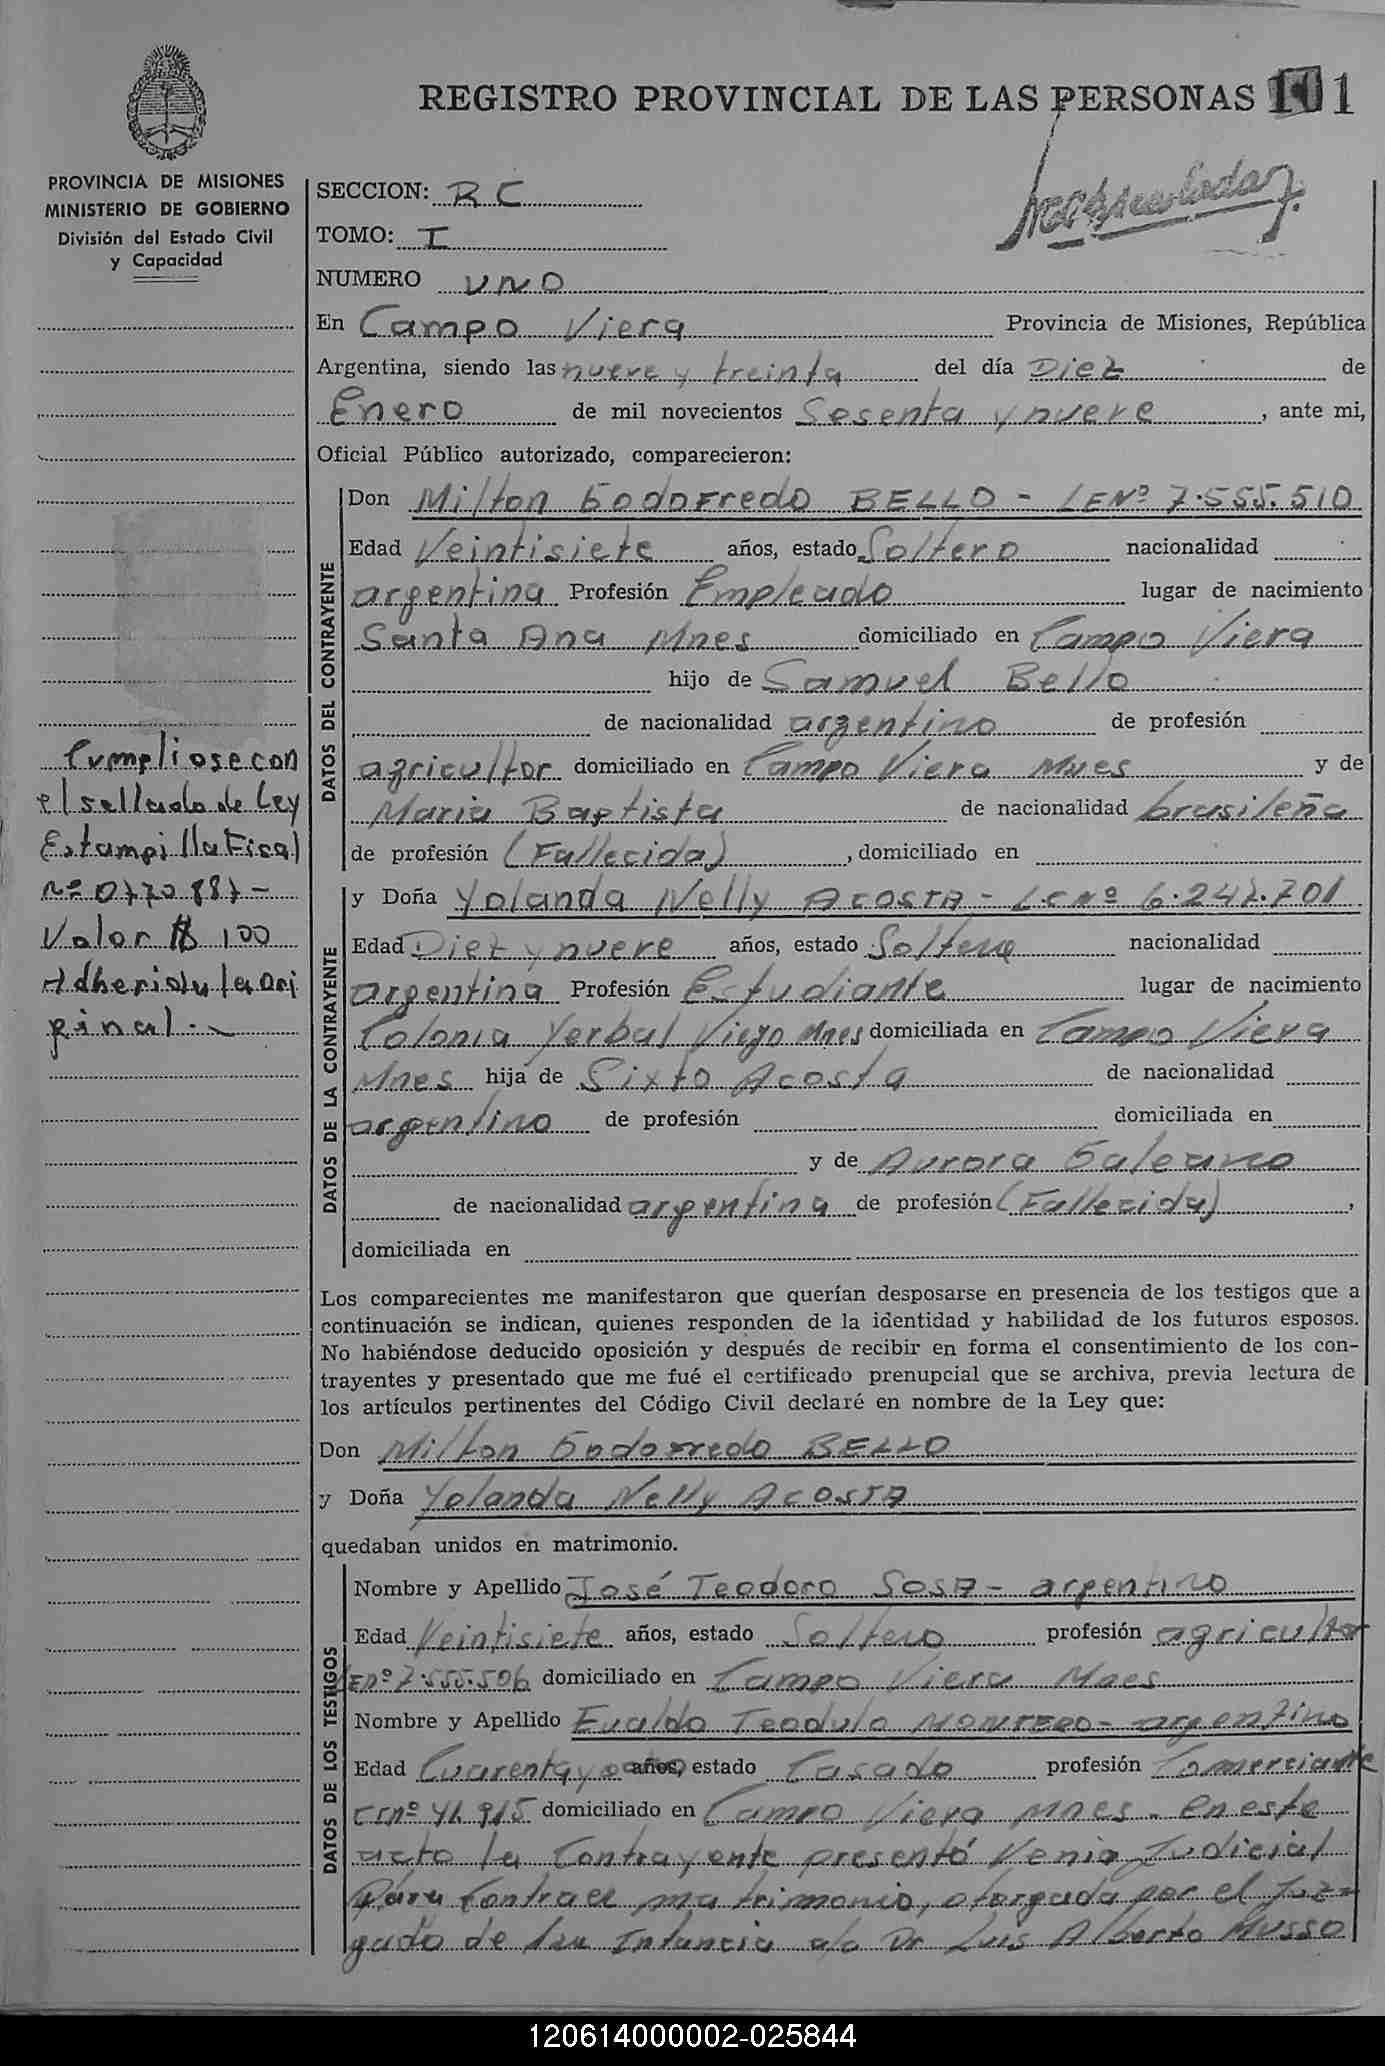 REGISTRO PROVINCIAL DE LAS PERSONAS 101
PROVINCIA DE MISIONES
MINISTERIO DE GOBIERNO
División del Estado Civil
y Capacidad
SECCION: R C
TOMO: I
NUMERO UNO
En Campo Viera Provincia de Misiones, República
Argentina, siendo las nueve y treinta del día Diez de
Enero de mil novecientos Sesenta y nueve, ante mi,
Oficial Público autorizado, comparecieron:
DATOS DEL CONTRAYENTE
Don Milton Godofredo BELLO - LENº 7.555.510
Edad Veintisiete años, estado Soltero nacionalidad
argentina Profesión Empleado lugar de nacimiento
Santa Ana Mnes domiciliado en Campo Viera
hijo de Samuel Bello
de nacionalidad argentino de profesión
agricultor domiciliado en Campo Viera Mnes y de
Maria Baptista de nacionalidad brasileña
de profesión (Fallecida), domiciliado en
Cumpliose con
el sellado de Ley
Estampilla Fiscal
Nº 0770887-
Valor $ 100
Adherida la ori
ginal.-
DATOS DE LA CONTRAYENTE
y Doña Yolanda Nelly ACOSTA - LCNº 6.247.701
Edad Diez y nueve años, estado Soltera nacionalidad
argentina Profesión Estudiante lugar de nacimiento
Colonia Yerbal Viejo Mnes domiciliada en Campo Viera
Mnes hija de Sixto Acosta de nacionalidad
argentino de profesión domiciliada en
y de Aurora Galeano
de nacionalidad argentina de profesión (Fallecida),
domiciliada en
Los comparecientes me manifestaron que querían desposarse en presencia de los testigos que a
continuación se indican, quienes responden de la identidad y habilidad de los futuros esposos.
No habiéndose deducido oposición y después de recibir en forma el consentimiento de los con-
trayentes y presentado que me fué el certificado prenupcial que se archiva, previa lectura de
los artículos pertinentes del Código Civil declaré en nombre de la Ley que:
Don Milton Godofredo BELLO
y Doña Yolanda Nelly ACOSTA
quedaban unidos en matrimonio.
DATOS DE LOS TESTIGOS
Nombre y Apellido José Teodoro SOSA - argentino
Edad Veintisiete años, estado Soltero profesión agricultor
LENº 7.555.506 domiciliado en Campo Viera Mnes
Nombre y Apellido Evaldo Teodulo MONTERO - argentino
Edad Cuarenta y años, estado Casado profesión Comerciante
domiciliado en Campo Viera Mnes - En este
acto la Contrayente presentó Venia Judicial
Para Contraer matrimonio, otorgada por el Juz-
gado de 1ra Intancia a/c Dr Luis Alberto Musso
120614000002-025844